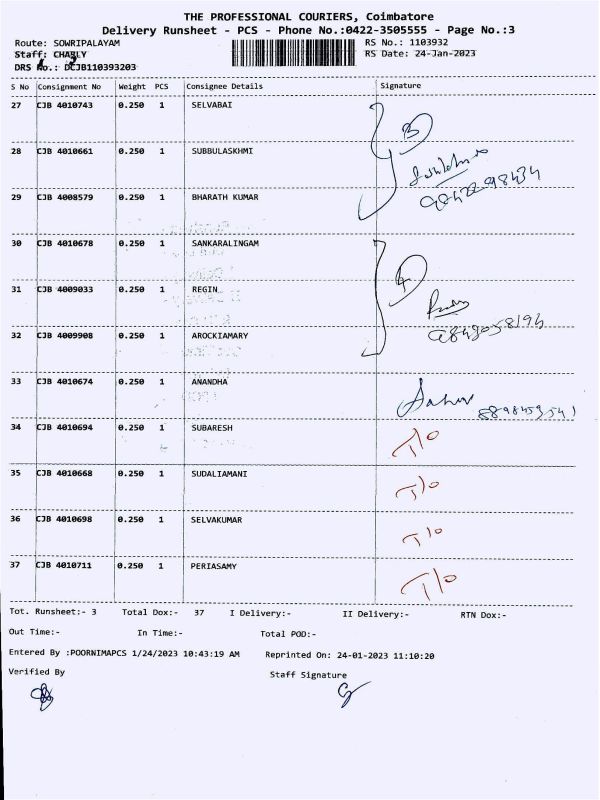 THE PROFESSIONAL COURIERS, Coimbatore
Delivery Runsheet - PCS - Phone No.:0422-3505555 - Page No.:3
Route: SOWRIPALAYAM
RS No.: 1103932
Staff: CHARLY
RS Date: 24-Jan-2023
DRS No.: DCJB110393203
S No Consignment No Weight PCS Consignee Details Signature
27 CJB 4010743 0.250 1 SELVABAI
28 CJB 4010661 0.250 1 SUBBULASKHMI
29 CJB 4008579 0.250 1 BHARATH KUMAR
30 CJB 4010678 0.250 1 SANKARALINGAM
31 CJB 4009033 0.250 1 REGIN
32 CJB 4009908 0.250 1 AROCKIAMARY
33 CJB 4010674 0.250 1 ANANDHA
34 CJB 4010694 0.250 1 SUBARESH T/o
35 CJB 4010668 0.250 1 SUDALIAMANI T/o
36 CJB 4010698 0.250 1 SELVAKUMAR T/o
37 CJB 4010711 0.250 1 PERIASAMY T/o
Tot. Runsheet:- 3 Total Dox:- 37 I Delivery:- II Delivery:- RTN Dox:-
Out Time:- In Time:- Total POD:-
Entered By :POORNIMAPCS 1/24/2023 10:43:19 AM Reprinted On: 24-01-2023 11:10:20
Verified By Staff Signature